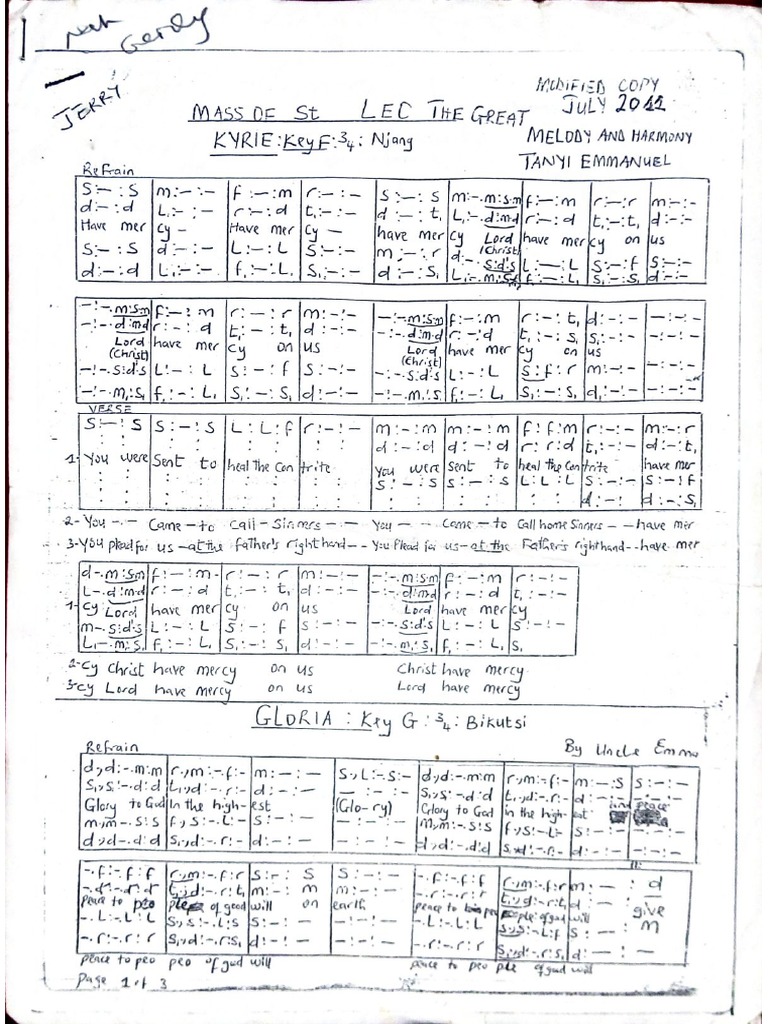 Gerdy
JERRY
MODIFIED COPY
JULY 2012
MASS OF St LEC THE GREAT
KYRIE: Key F: 3/4: Njang
MELODY AND HARMONY
TANYI EMMANUEL
Refrain
S:—:S | m:—:— | f:—:m | r:—:— | S:—:S | m:—.m:s.m | f:—:m | r:—:r | m:—:—
d:—:d | L₁:—:— | r:—:d | t₁:—:— | d:—:t₁ | L₁:—.d:m.d | r:—:d | t₁:—:t₁ | d:—:—
Have mer cy – Have mer cy – have mer cy Lord have mer cy on us
(Christ)
S:—:S | d:—:— | L:—:L | S:—:— | m:—:r | d:— S:d's | L:—:L | S:—:f | S:—:—
d:—:d | L₁:—:— | f₁:—:L₁ | S₁:—:— | d:—:S₁ | L₁:—.m₁:S₁ | f₁:—:L₁ | S₁:—:S₁ | d:—:—
—:—.m:s.m | f:—:m | r:—:r | m:—:— | —:—.m:s.m | f:—:m | r:—:t₁ | d:—:— | —:—:—
—:—.d:m.d | r:—:d | t₁:—:t₁ | d:—:— | —:—.d:m.d | r:—:d | t₁:—:S₁ | d:—:— | —:—:—
Lord have mer cy on us Lord have mer cy on us
(Christ) (Christ)
—:—.S:d's | L:—:L | S:—:f | S:—:— | —:—.S:d's | L:—:L | S:f:r | m:—:— | —:—:—
—:—.m₁:S₁ | f₁:—:L₁ | S₁:—:S₁ | d:—:— | —:—.m₁:S₁ | f₁:—:L₁ | S₁:—:S₁ | d₁:—:— | —:—:—
VERSE
S:—:S | S:—:S | L:L:f | r:—:— | m:—:m | m:—:m | f:f:m | r:—:— | m:—:r
d:—:d | d:—:d | r:r:d | t₁:—:— | d:—:t₁
1- You were Sent to heal the Con trite You were sent to heal the Con trite have mer
S:—:S | S:—:S | L:L:L | S:—:— | S:—:f
d:—:— | d:—:S₁
2- You –·– Came – to Call – Sinners –·– You –·– Came – to Call home Sinners – – have mer
3- You plead for us – at the Father's right hand – – You Plead for us – at the Father's right hand – – have mer
d–.m:s.m | f:—:m | r:—:r | m:—:— | —:—.m:s.m | f:—:m | r:—:—
L–.d:m.d | r:—:d | t₁:—:t₁ | d:—:— | —:—.d:m.d | r:—:d | t₁:—:—
1- Cy Lord have mer cy on us Lord have mer cy
m–.S:d's | L:—:L | S:—:f | S:—:— | —:—.S:d's | L:—:L | S:—:—
L₁–.m₁:S₁ | f₁:—:L₁ | S₁:—:S₁ | d:—:— | —:—.m₁:S₁ | f₁:—:L₁ | S₁
2- Cy Christ have mercy on us Christ have mercy
3- Cy Lord have mercy on us Lord have mercy
GLORIA: Key G: 3/4: Bikutsi
Refrain
By Uncle Emma
d,d:–.m:m | r,m:–.f:– | m:—:— | S,L:–.S:– | d,d:–.m:m | r,m:–.f:– | m:—:S | S:—:—
S₁,S₁:–.d:d | t₁,d:–.r:– | d:—:— | —:—:— | S₁,S₁:–.d:d | t₁,d:–.r:– | d:—:— | —:—:—
Glory to God In the high-est (Glo-ry) Glory to God in the high est and peace
m,m:–.S:S | f,S:–.L:– | S:—:— | —:—:— | m,m:–.S:S | f,S:–.L:– | S:—:— | —:—:—
d,d:–.d:d | S₁,d:–.r:– | d:—:— | —:—:— | d,d:–.d:d | S₁,d:–.r:– | d:—:— | —:—:—
–.f:–.f:f | r,m:–.f:r | S:—:S | S:—:— | –.f:–.f:f | r,m:–.f:r | m:—:d
–.d:–.d:d | t₁,d:–.r:t₁ | m:—:m | m:—:— | –.r:–.r:r | t₁,d:–.r:t₁ | d:—:—
peace to peo ple of good will on earth peace to peo ple of good will give
–.L:–.L:L | S,S:–.L:S | S:—:— | —:—:— | –.L:–.L:L | S,S:–.L:f | S:—:m
–.r:–.r:r | S₁,d:–.r:S₁ | d:—:— | —:—:— | –.r:–.r:r | S₁,d:–.r:S₁ | d:—:—
peace to peo peo of gud will peace to peo ple of gud will
Page 1 of 3